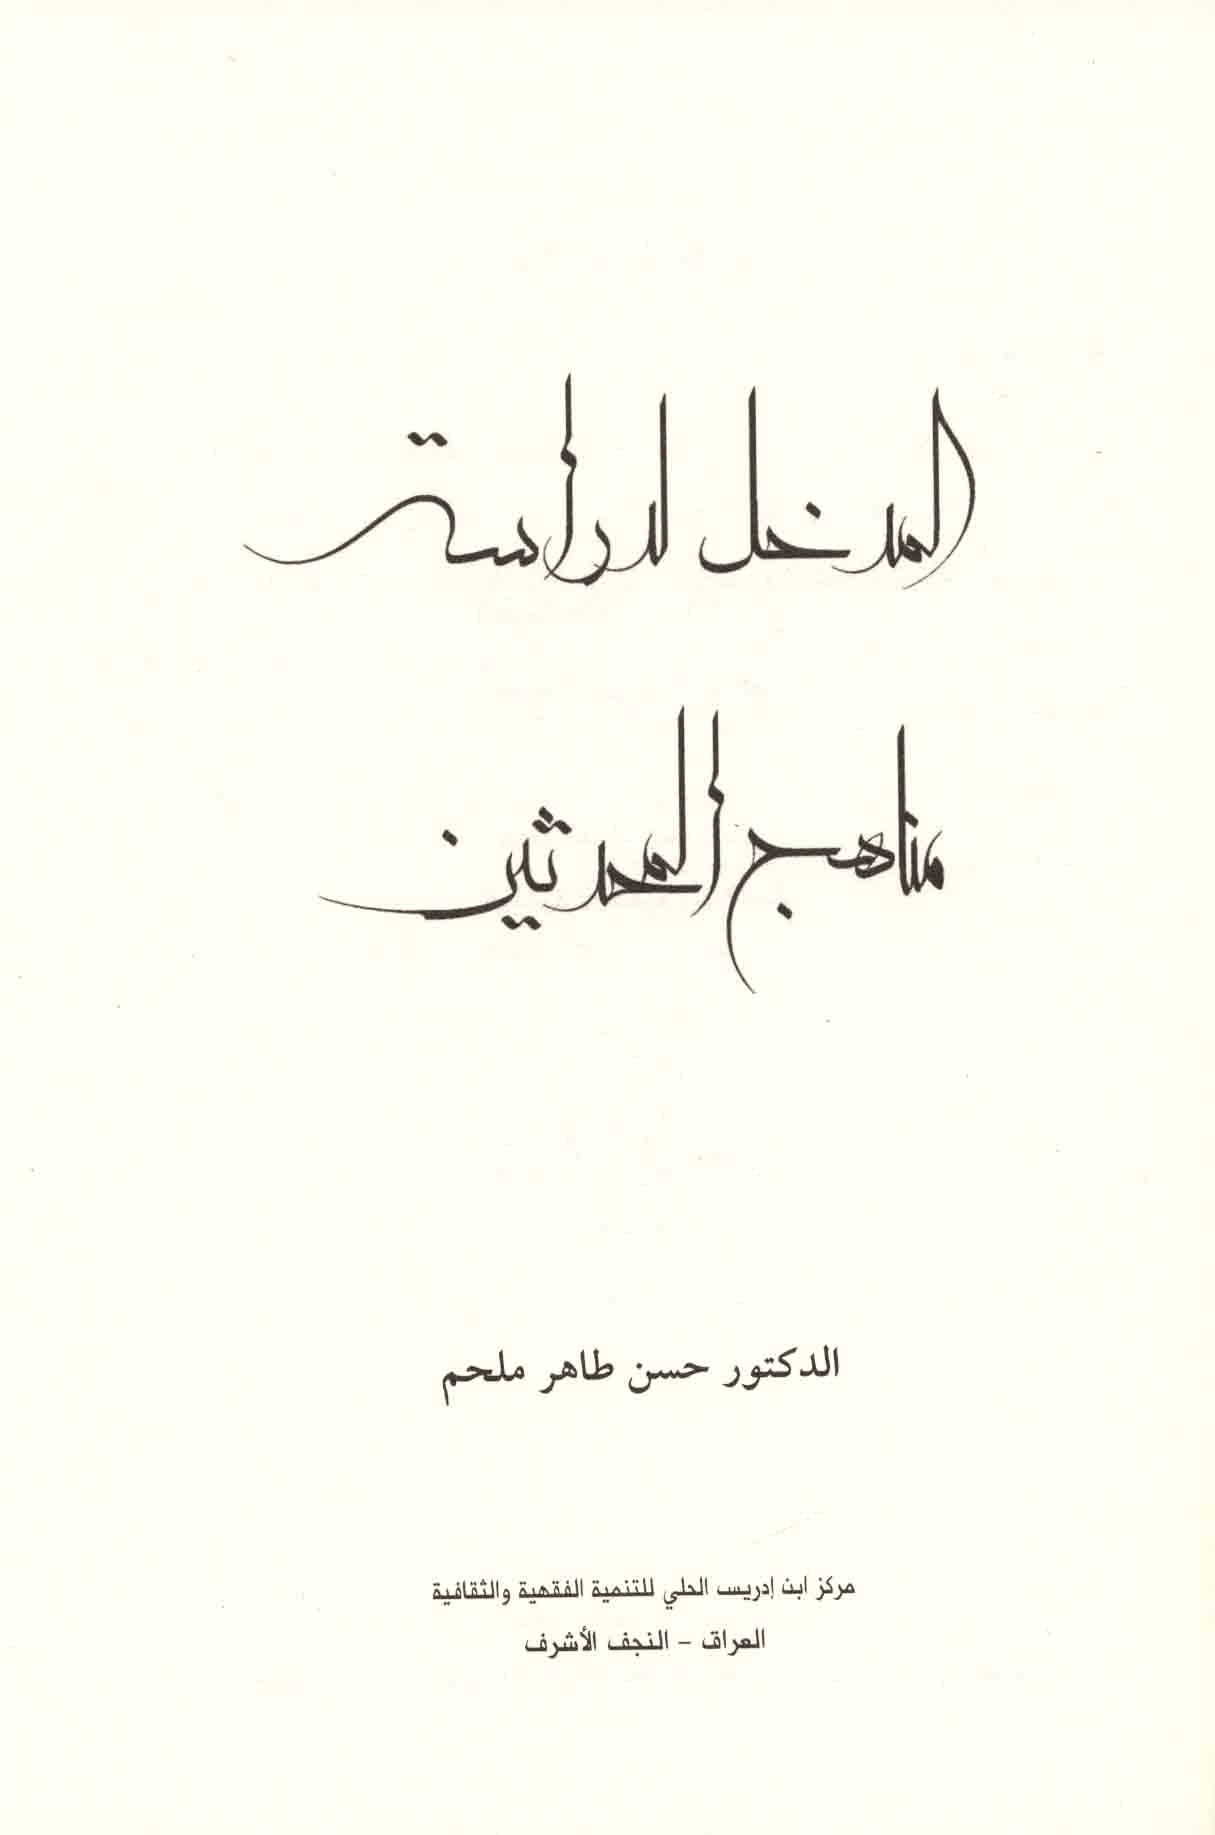 المدخل لدراسة
مناهج المحدثين
الدكتور حسن طاهر ملحم
مركز ابن إدريس الحلي للتنمية الفقهية والثقافية
العراق - النجف الأشرف